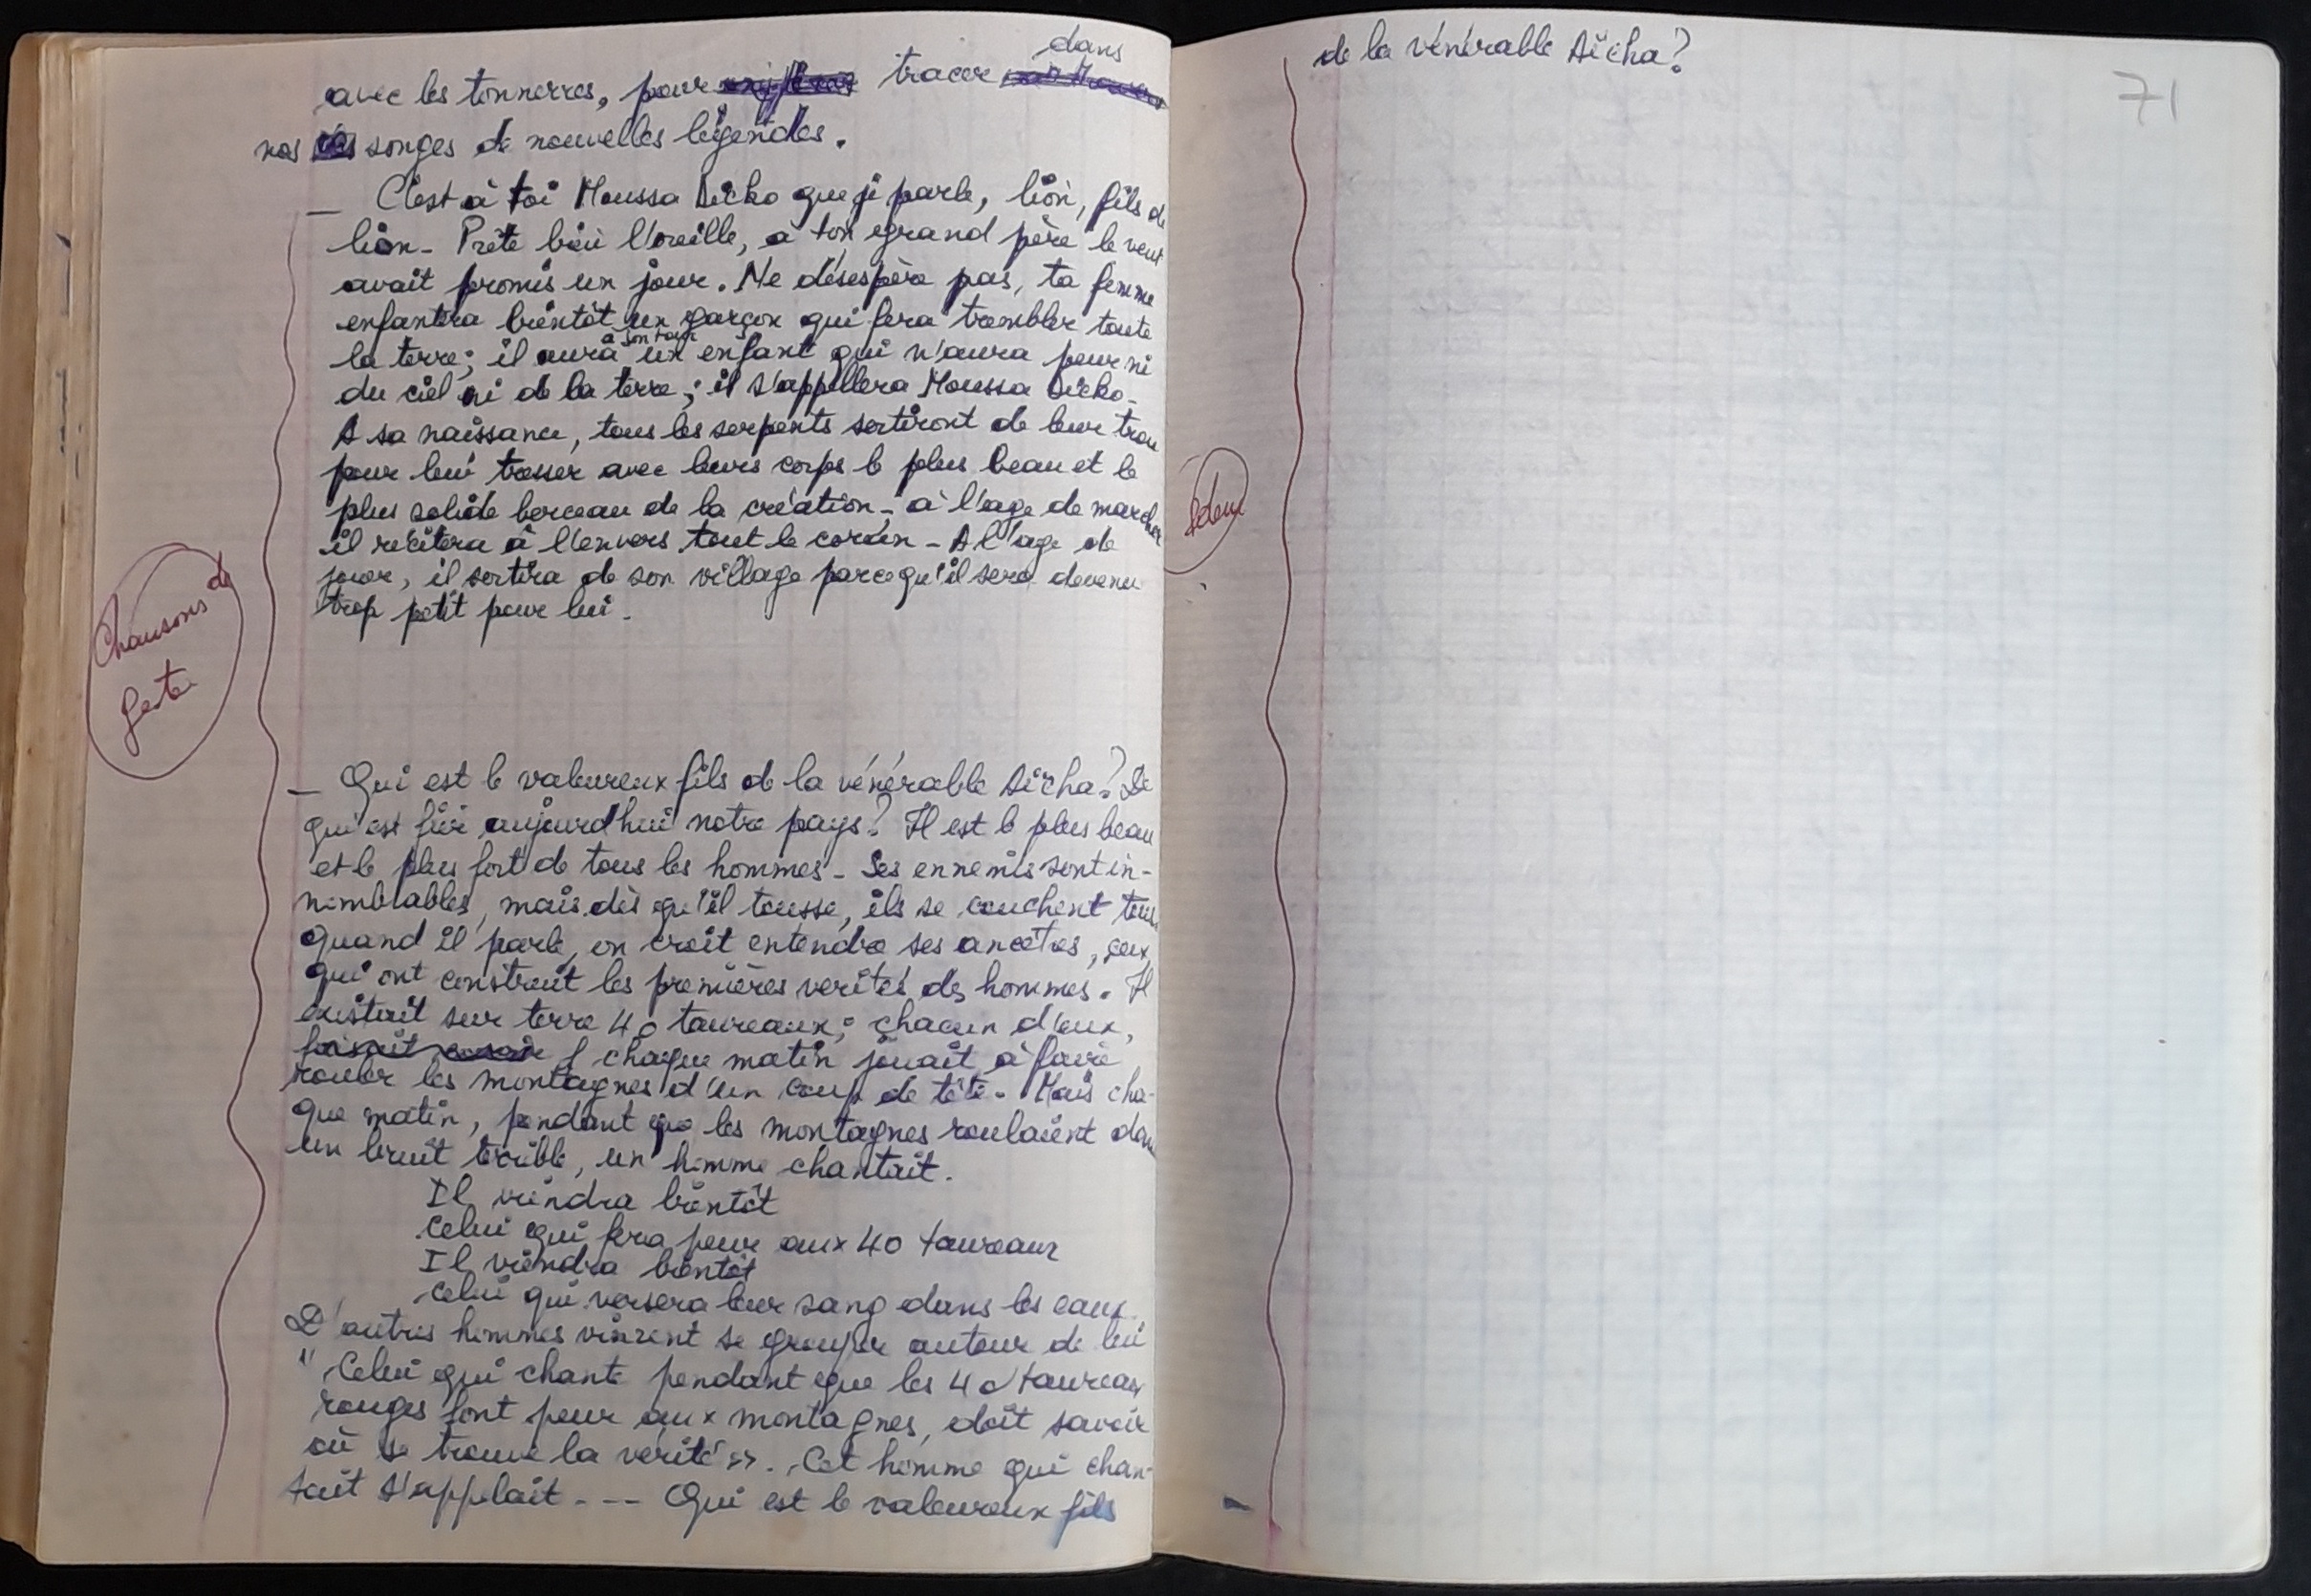 dans
avec les tonnerres, pour tracer
nos songes de nouvelles légendes.
— C'est à toi Moussa Dicko que je parle, lion, fils de
lion - Prête bien l'oreille, à ton grand père le vent
avait promis un jour. Ne désespère pas, ta femme
enfantera bientôt un garçon qui fera trembler toute
à son tour
la terre; il aura un enfant qui n'aura peur ni
du ciel ni de la terre; il s'appellera Moussa Dicko -
A sa naissance, tous les serpents sortiront de leur trou
pour lui tresser avec leurs corps le plus beau et le
plus solide berceau de la création - à l'age de marcher
il récitera à l'envers tout le coran - A l'age de
jouer, il sortira de son village parce qu'il sera devenu
trop petit pour lui -
Chansons de
geste
— Qui est le valeureux fils de la vénérable Aïcha? De
qui est fier aujourd'hui notre pays? Il est le plus beau
et le plus fort de tous les hommes - Ses ennemis sont in-
nombrables, mais dès qu'il tousse, ils se couchent tous
quand il parle, on croit entendre ses ancêtres, ceux
qui ont construit les premières verités des hommes. Il
existait sur terre 40 taureaux; chacun d'eux,
faisait chaque matin jouait à faire
rouler les montagnes d'un coup de tête - Mais cha-
que matin, pendant que les montagnes roulaient dans
un bruit terrible, un homme chantait.
Il viendra bientôt
celui qui fera peur aux 40 taureaux
Il viendra bientôt
celui qui versera leur sang dans les eaux.
D'autres hommes vinrent se grouper autour de lui
"Celui qui chante pendant que les 40 taureaux
rouges font peur aux montagnes, doit savoir
où se trouve la vérité". Cet homme qui chan-
tait s'appelait - - - Qui est le valeureux fils
de la vénérable Aïcha?
71